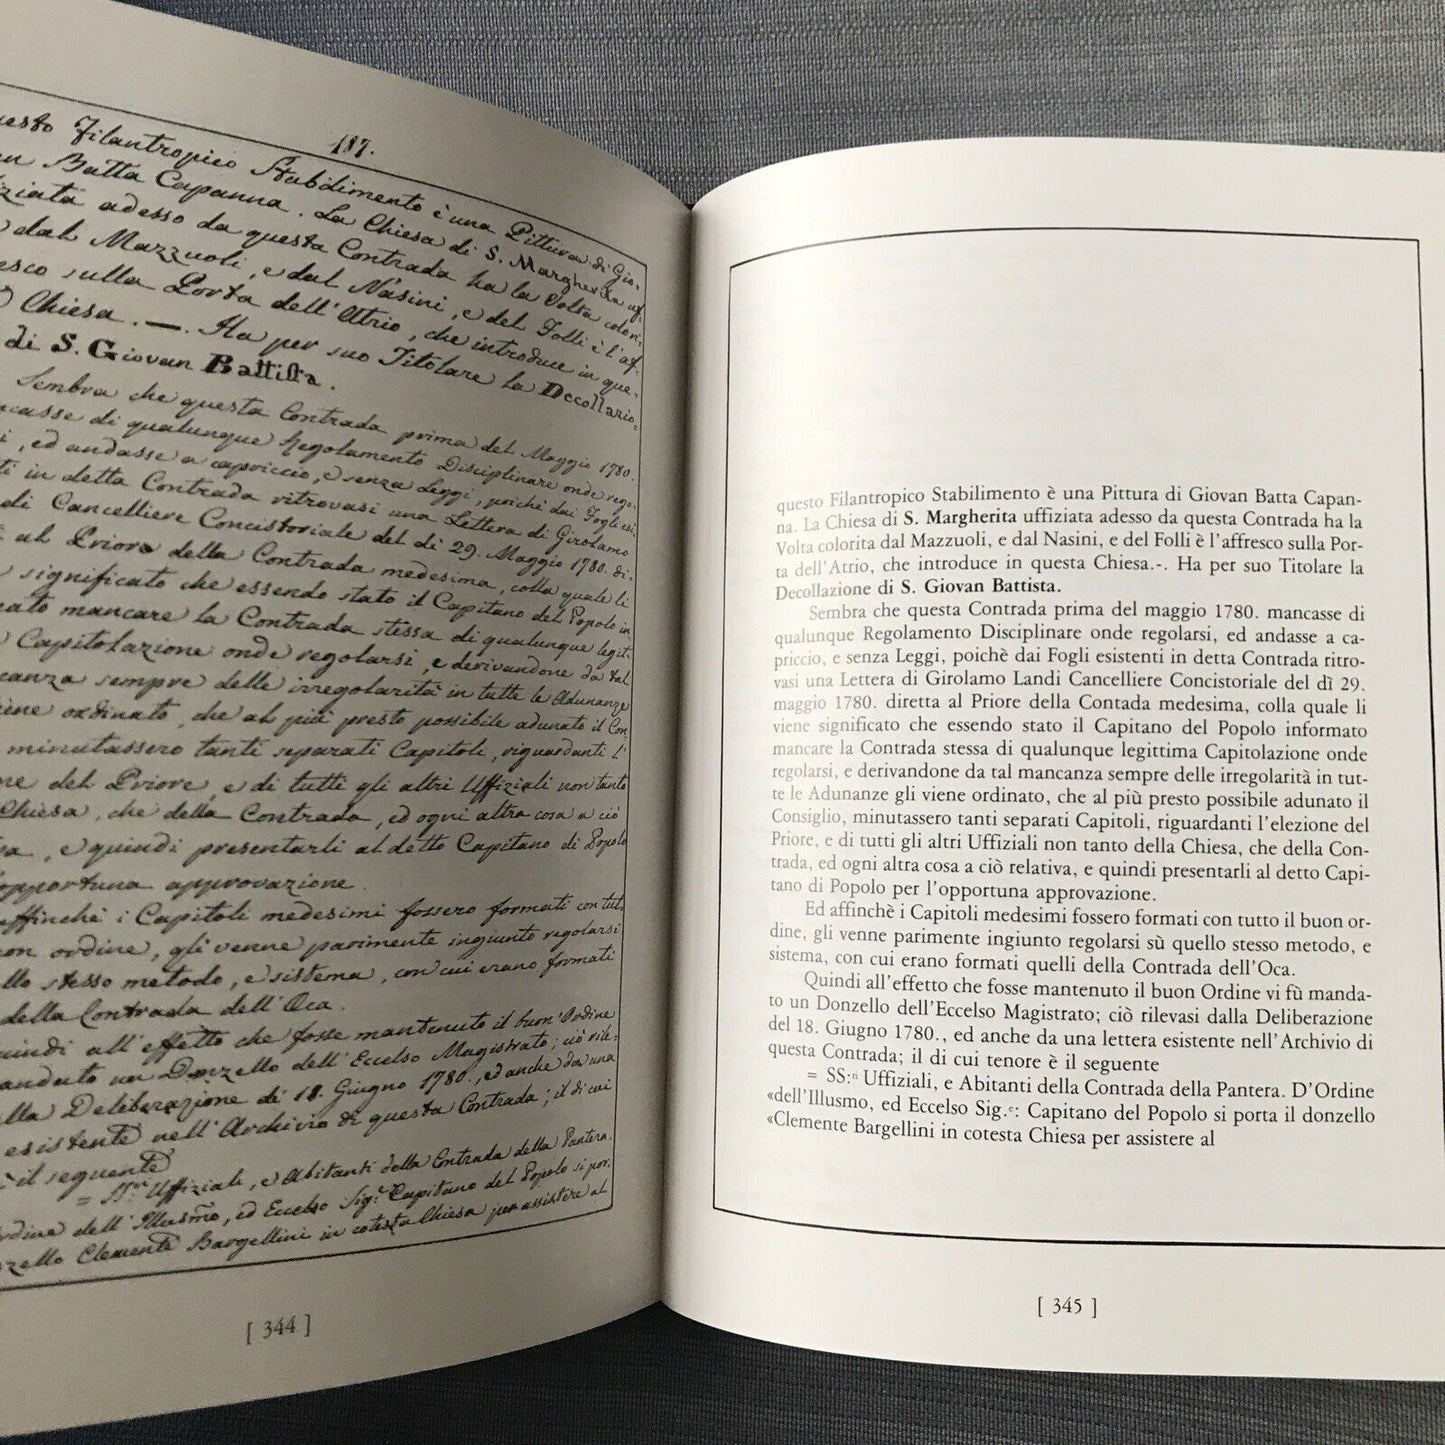 187.
Filantropico Stabilimento è una Pittura di Gio-
Batta Capanna. La Chiesa di S. Margherita uf-
adesso da questa Contrada ha la Volta colori-
dal Mazzuoli, e dal Nasini, e del Folli è l'af-
sulla Porta dell'Atrio, che introduce in que-
Chiesa. —. Ha per suo Titolare la Decollazio-
di S. Giovan Battista.
Sembra che questa Contrada prima del Maggio 1780.
di qualunque Regolamento Disciplinare onde rego-
ed andasse a capriccio, e senza Leggi, poichè dai Fogli esi-
in detta Contrada ritrovasi una Lettera di Girolamo
di Cancelliere Concistoriale del dì 29. Maggio 1780. di-
al Priore della Contrada medesima, colla quale li
significato che essendo stato il Capitano del Popolo in
mancare la Contrada stessa di qualunque legit-
Capitolazione onde regolarsi, e derivandone da tal
sempre delle irregolarità in tutte le Adunanze
ordinato, che al più presto possibile adunato il Con
minutassero tanti separati Capitoli, riguardanti l'
del Priore, e di tutti gli altri Uffiziali non tanto
Chiesa, che della Contrada, ed ogni altra cosa a ciò
e quindi presentarli al detto Capitano di Popolo
opportuna approvazione.
affinchè i Capitoli medesimi fossero formati con tut-
ordine, gli venne parimente ingiunto regolarsi
stesso metodo, e sistema, con cui erano formati
della Contrada dell'Oca.
all'effetto che fosse mantenuto il buon'Ordine
un Donzello dell'Eccelso Magistrato; ciò rile-
Deliberazione di 18. Giugno 1780., ed anche da una
esistente nell'Archivio di questa Contrada; il di cui
il seguente
= SS:ri Uffiziali, e Abitanti della Contrada della Pantera.
dell'Illusmo, ed Eccelso Sig.e Capitano del Popolo si por-
Clemente Bargellini in cotesta Chiesa per assistere al
[ 344 ]
questo Filantropico Stabilimento è una Pittura di Giovan Batta Capan-
na. La Chiesa di S. Margherita uffiziata adesso da questa Contrada ha la
Volta colorita dal Mazzuoli, e dal Nasini, e del Folli è l'affresco sulla Por-
ta dell'Atrio, che introduce in questa Chiesa.-. Ha per suo Titolare la
Decollazione di S. Giovan Battista.
Sembra che questa Contrada prima del maggio 1780. mancasse di
qualunque Regolamento Disciplinare onde regolarsi, ed andasse a ca-
priccio, e senza Leggi, poichè dai Fogli esistenti in detta Contrada ritro-
vasi una Lettera di Girolamo Landi Cancelliere Concistoriale del dì 29.
maggio 1780. diretta al Priore della Contada medesima, colla quale li
viene significato che essendo stato il Capitano del Popolo informato
mancare la Contrada stessa di qualunque legittima Capitolazione onde
regolarsi, e derivandone da tal mancanza sempre delle irregolarità in tut-
te le Adunanze gli viene ordinato, che al più presto possibile adunato il
Consiglio, minutassero tanti separati Capitoli, riguardanti l'elezione del
Priore, e di tutti gli altri Uffiziali non tanto della Chiesa, che della Con-
trada, ed ogni altra cosa a ciò relativa, e quindi presentarli al detto Capi-
tano di Popolo per l'opportuna approvazione.
Ed affinchè i Capitoli medesimi fossero formati con tutto il buon or-
dine, gli venne parimente ingiunto regolarsi sù quello stesso metodo, e
sistema, con cui erano formati quelli della Contrada dell'Oca.
Quindi all'effetto che fosse mantenuto il buon Ordine vi fù manda-
to un Donzello dell'Eccelso Magistrato; ciò rilevasi dalla Deliberazione
del 18. Giugno 1780., ed anche da una lettera esistente nell'Archivio di
questa Contrada; il di cui tenore è il seguente
= SS:ri Uffiziali, e Abitanti della Contrada della Pantera. D'Ordine
«dell'Illusmo, ed Eccelso Sig.e: Capitano del Popolo si porta il donzello
«Clemente Bargellini in cotesta Chiesa per assistere al
[ 345 ]